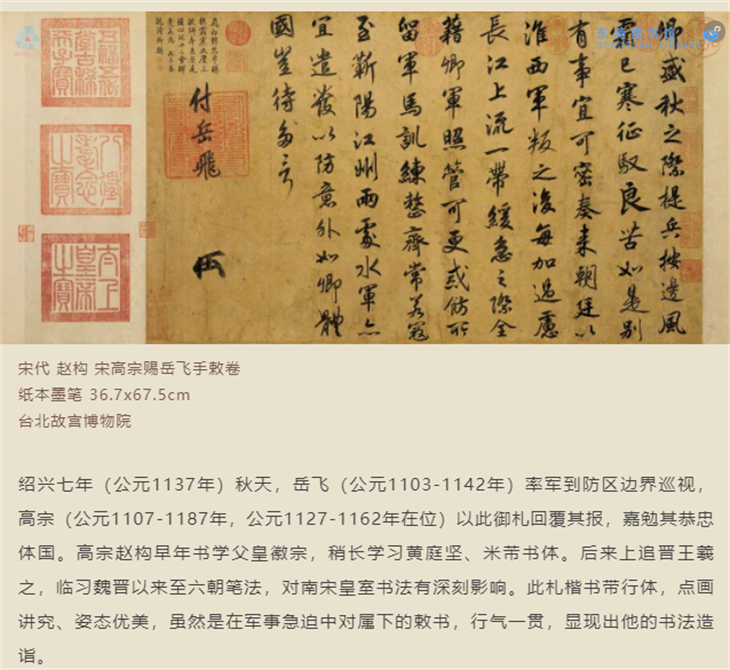 东莞图书馆
卿盛秋之際提兵按邊風
霜已寒征馭良苦如是別
有事宜可密奏來朝廷以
淮西軍叛之後每加過慮
長江上流一帶緩急之際全
藉卿軍照管可更戒飭所
留軍馬訓練整齊常若寇
至蘄陽江州兩處水軍亦
宜遣發以防意外如卿體
國豈待多言
付岳飛
五福五代堂古稀天子寶
八徵耄念之寶
太上皇帝之寶
宋代 赵构 宋高宗赐岳飞手敕卷
纸本墨笔 36.7x67.5cm
台北故宫博物院
绍兴七年（公元1137年）秋天，岳飞（公元1103-1142年）率军到防区边界巡视，
高宗（公元1107-1187年，公元1127-1162年在位）以此御札回覆其报，嘉勉其恭忠
体国。高宗赵构早年书学父皇徽宗，稍长学习黄庭坚、米芾书体。后来上追晋王羲
之，临习魏晋以来至六朝笔法，对南宋皇室书法有深刻影响。此札楷书带行体，点画
讲究、姿态优美，虽然是在军事急迫中对属下的敕书，行气一贯，显现出他的书法造
诣。